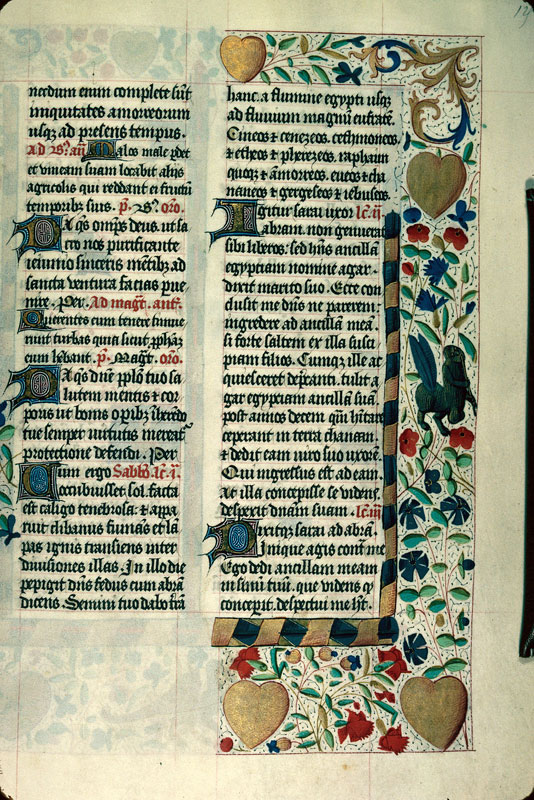 necdum enim complete sūt
iniquitates amorreorum
usq; ad presens tempus.
Ad v̄. añ Malos male pdet
et vineam suam locabit alijs
agricolis qui reddant ei fructū
temporibus suis. p̄. v̄. oro.
Da q̄s omp̄s deus ut sa
cro nos purificante
ieiunio sinceris mētibus ad
sancta ventura facias pue
nire. Per. Ad mag̃t. ant.
Querentes eum tenere timue
runt turbas quia sicut pphāz
eum hēbant. p̄. Mag̃t. oro.
Da q̄s dñe pplo tuo sa
lutem mentis et cor
poris ut bonis opibz iherēdo
tue semper virtutis mereat̄
protectione defendi. Per
Cum ergo Sabbo. lc̄. i.
occubuisset sol. facta
est caligo tenebrosa. et appa
ruit clibanus fumās et lā
pas ignis transiens inter
diuisiones illas. In illo die
pepigit dñs fedus cum abrā
dicens. Semini tuo dabo trā
hanc. a flumine egypti usq;
ad fluuium magnū eufratē.
Cineos et cenezeos. cethmoneos
et etheos et pherezeos. raphaim
quoqz et amorreos. eueos et cha
naneos et gergeseos et iebuseos.
Igitur sarai uxor lc̄. ii
abram. non genuerat
sibi liberos. sed hñs ancillā
egyptiam nomine agar.
dixit marito suo. Ecce con
clusit me dñs ne parerem.
ingredere ad ancillam meā.
si forte saltem ex illa susci
piam filios. Cumqz ille ac
quiesceret depcanti. tulit a
gar egyptiam ancillā suā.
post annos decem qm̄ hītare
ceperant in terra chanaan.
et dedit eam viro suo uxorē.
Qui ingressus est ad eam.
At illa concepisse se videns.
despexit dnam suam. lc̄. iii
Dixitqz sarai ad abrā.
Inique agis cont me
Ego dedi ancillam meam
in sinū tuū. que videns q
conceperit. despectui me hēt.